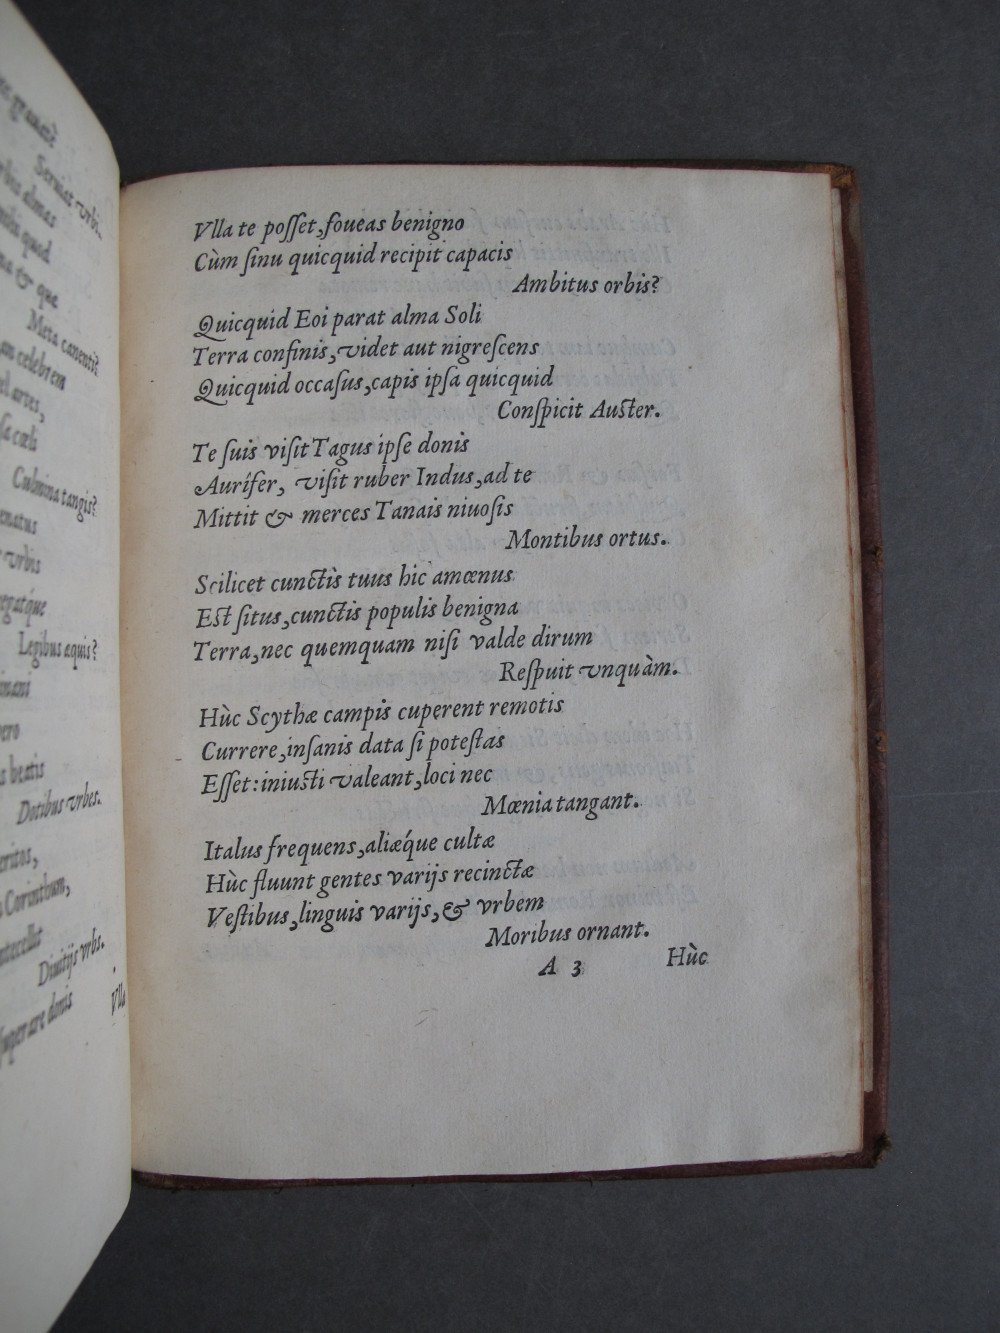 Serviat vrbi
Meta canenti?
Culmina tangis?
Legibus æquis?
Dotibus vrbes.
Corinthum,
Diuitijs vrbs.
superare donis
Vlla
Vlla te posset, foueas benigno
Cùm sinu quicquid recipit capacis
Ambitus orbis?
Quicquid Eoi parat alma Soli
Terra confinis, videt aut nigrescens
Quicquid occasus, capis ipsa quicquid
Conspicit Auster.
Te suis visit Tagus ipse donis
Aurífer, visit ruber Indus, ad te
Mittit & merces Tanais niuosis
Montibus ortus.
Scilicet cunctis tuus hic amœnus
Est situs, cunctis populis benigna
Terra, nec quemquam nisi valde dirum
Respuit vnquàm.
Hùc Scythæ campis cuperent remotis
Currere, insanis data si potestas
Esset: iniusti valeant, loci nec
Mœnia tangant.
Italus frequens, aliǽque cultæ
Hùc fluunt gentes varijs recinctæ
Vestibus, linguis varijs, & vrbem
Moribus ornant.
A 3 Hùc